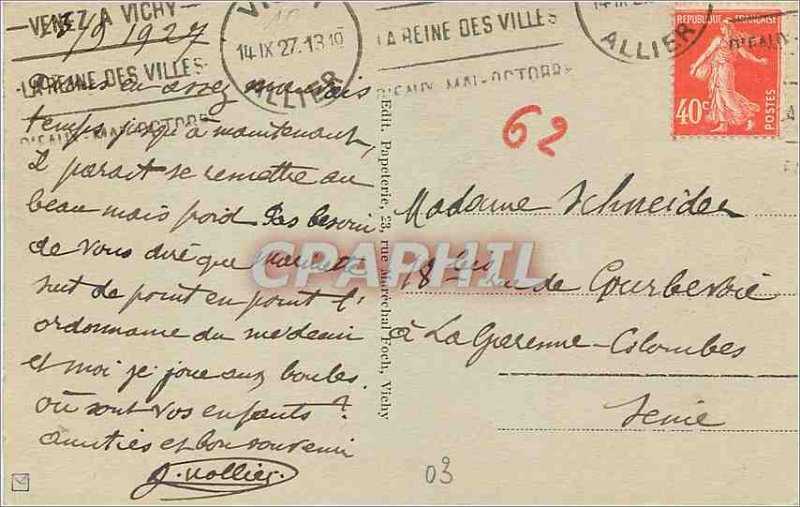 VENEZ A VICHY
13/9 1927
LA REINE DES VILLES
D'EAUX MAI-OCTOBRE
14 IX 27. 13
ALLIER
LA REINE DES VILLES
D'EAUX MAI-OCTOBRE
ALLIER
REPUBLIQUE FRANÇAISE
40c
POSTES
D'EAUX
en assez mauvais
temps jusqu'à maintenant,
Il parait se remettre au
beau mais froid Pas besoin
de vous dire que
suit de point en point l'
ordonnance du médecin
et moi je joue aux boules.
où sont vos enfants ?
amitiés et bon souvenir
Edit. Papeterie, 23, rue Maréchal Foch, Vichy
62
Madame Schneider
18 bis rue de Courbevoie
à La Garenne-Colombes
Seine
03
CPARHIL